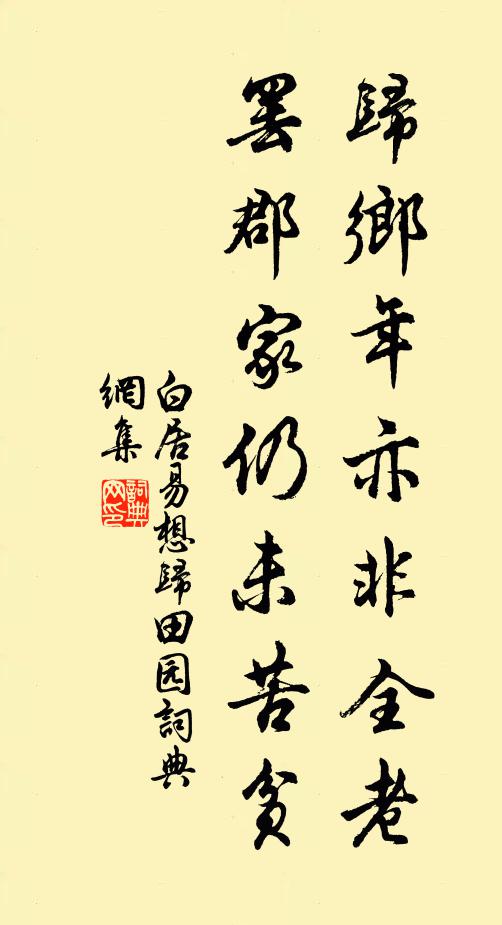 歸鄉年亦非全老
罷郡家仍未苦貧
白居易想歸田园詞典
網集
詞典
网印